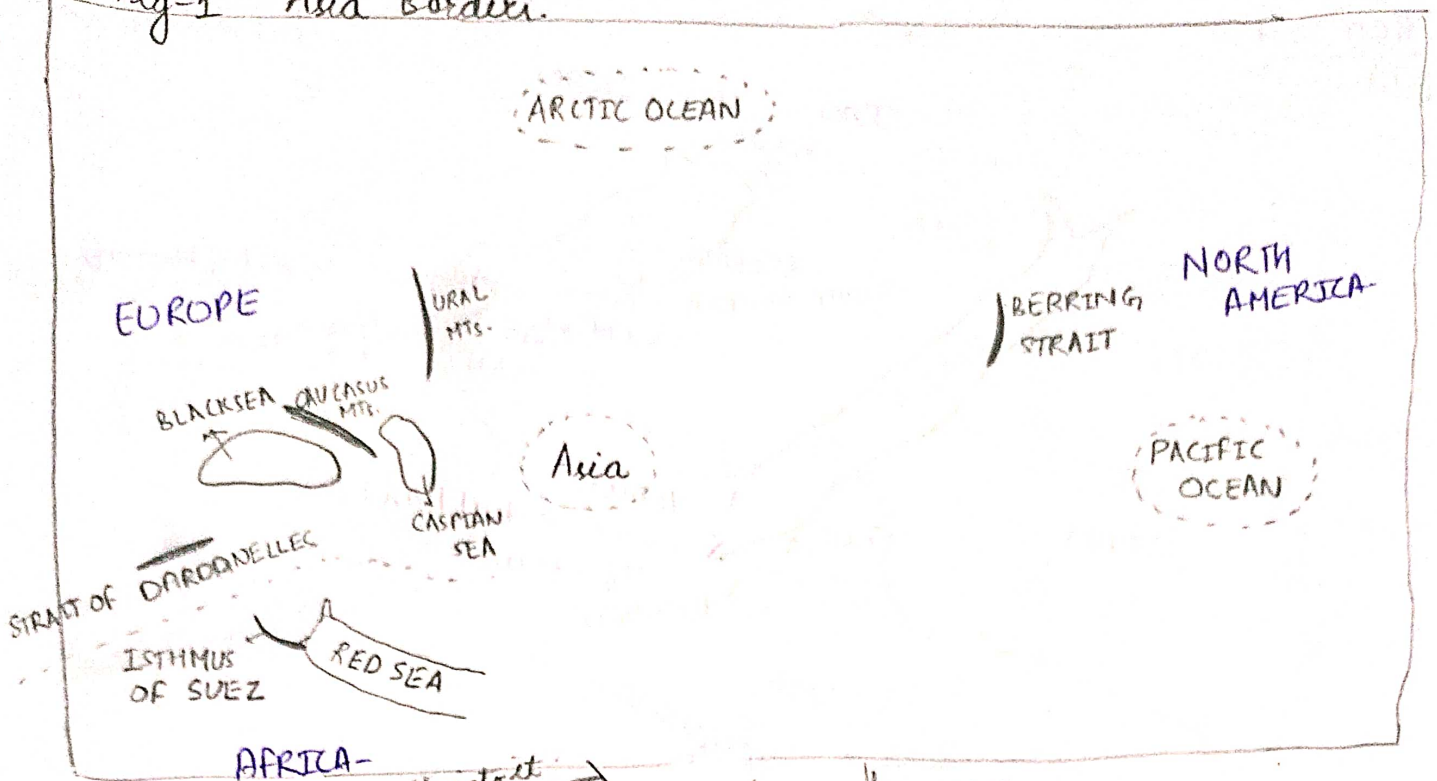 Fig-1 Asia Border.
ARCTIC OCEAN
NORTH
AMERICA-
EUROPE
URAL
MTS.
BERRING
STRAIT
BLACKSEA
CAUCASUS
MTS.
Asia
PACIFIC
OCEAN
CASPIAN
SEA
STRAIT OF DARDANELLES
ISTHMUS
OF SUEZ
RED SEA
AFRICA-